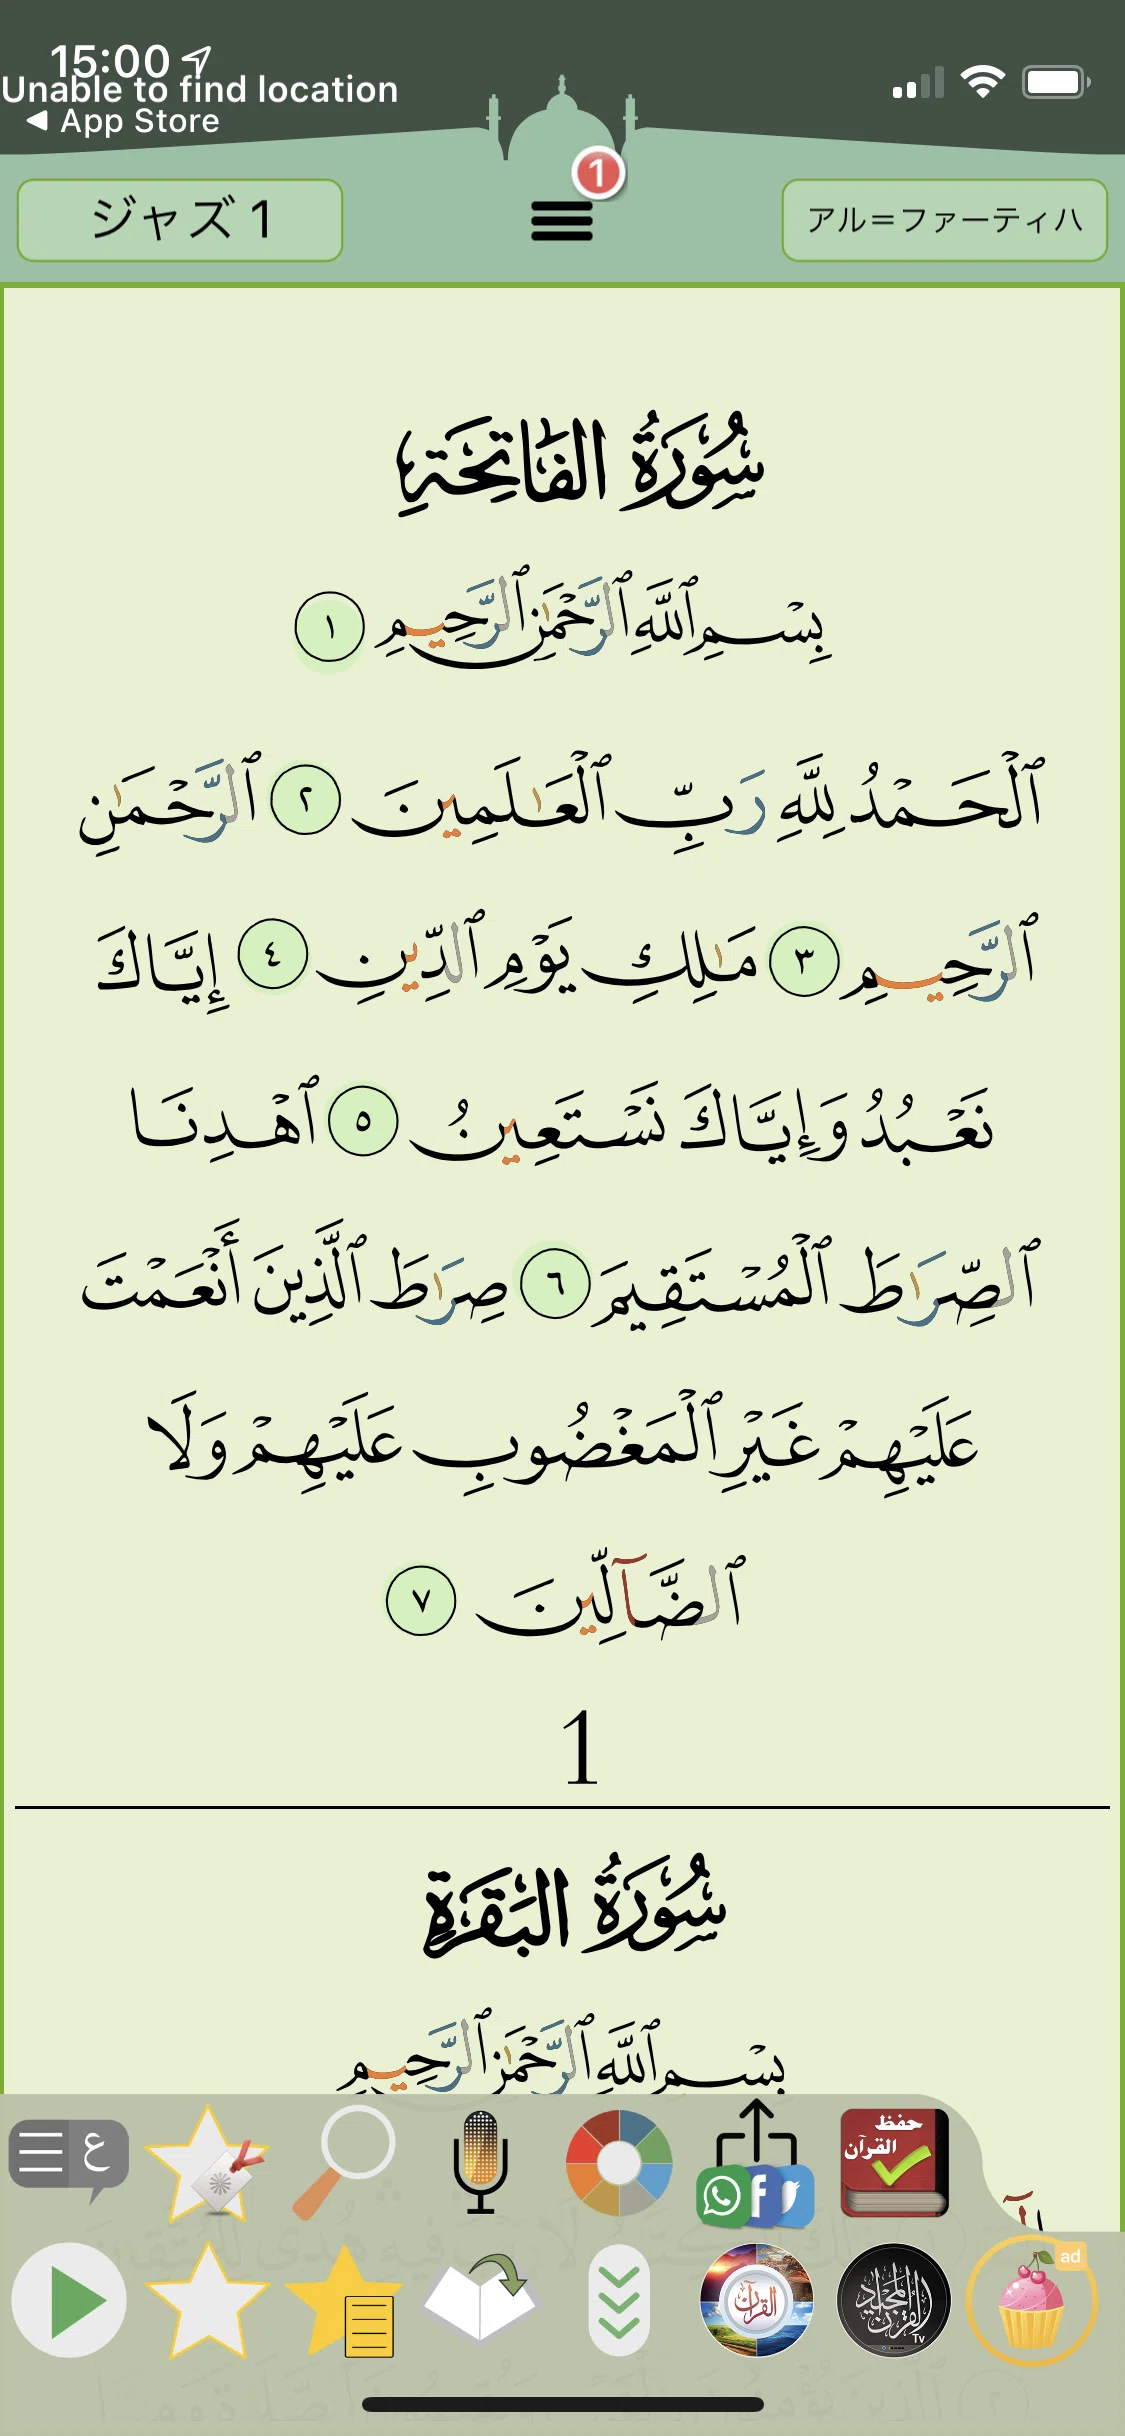 15:00
Unable to find location
◀ App Store
1
ジャズ 1
アル＝ファーティハ
سُورَةُ الفَاتِحَةِ
بِسْمِ ٱللَّهِ ٱلرَّحْمَٰنِ ٱلرَّحِيمِ ١
ٱلْحَمْدُ لِلَّهِ رَبِّ ٱلْعَٰلَمِينَ ٢ ٱلرَّحْمَٰنِ
ٱلرَّحِيمِ ٣ مَٰلِكِ يَوْمِ ٱلدِّينِ ٤ إِيَّاكَ
نَعْبُدُ وَإِيَّاكَ نَسْتَعِينُ ٥ ٱهْدِنَا
ٱلصِّرَٰطَ ٱلْمُسْتَقِيمَ ٦ صِرَٰطَ ٱلَّذِينَ أَنْعَمْتَ
عَلَيْهِمْ غَيْرِ ٱلْمَغْضُوبِ عَلَيْهِمْ وَلَا
ٱلضَّآلِّينَ ٧
1
سُورَةُ البَقَرَةِ
بِسْمِ ٱللَّهِ ٱلرَّحْمَٰنِ ٱلرَّحِيمِ
ع
حفظ
القرآن
القرآن
القرآن المجيد
Tv
ad